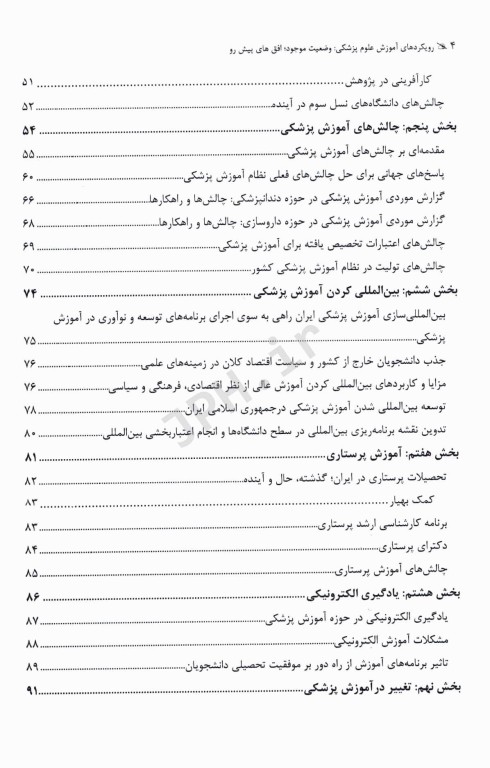 ۴ رویکردهای آموزش علوم پزشکی: وضعیت موجود؛ افق های پیش رو
کارآفرینی در پژوهش ۵۱
چالش‌های دانشگاه‌های نسل سوم در آینده ۵۲
بخش پنجم: چالش‌های آموزش پزشکی ۵۴
مقدمه‌ای بر چالش‌های آموزش پزشکی ۵۵
پاسخ‌های جهانی برای حل چالش‌های فعلی نظام آموزش پزشکی ۶۰
گزارش موردی آموزش پزشکی در حوزه دندانپزشکی: چالش‌ها و راهکارها ۶۶
گزارش موردی آموزش پزشکی در حوزه داروسازی: چالش‌ها و راهکارها ۶۸
چالش‌های اعتبارات تخصیص یافته برای آموزش پزشکی ۶۹
چالش‌های تولیت در نظام آموزش پزشکی کشور ۷۰
بخش ششم: بین‌المللی کردن آموزش پزشکی ۷۴
بین‌المللی‌سازی آموزش پزشکی ایران راهی به سوی اجرای برنامه‌های توسعه و نوآوری در آموزش
پزشکی ۷۵
جذب دانشجویان خارج از کشور و سیاست اقتصاد کلان در زمینه‌های علمی ۷۶
مزایا و کاربردهای بین‌المللی کردن آموزش عالی از نظر اقتصادی، فرهنگی و سیاسی ۷۶
توسعه بین‌المللی شدن آموزش پزشکی درجمهوری اسلامی ایران ۷۸
تدوین نقشه برنامه‌ریزی بین‌المللی در سطح دانشگاه‌ها و انجام اعتباربخشی بین‌المللی ۸۰
بخش هفتم: آموزش پرستاری ۸۱
تحصیلات پرستاری در ایران؛ گذشته، حال و آینده ۸۲
کمک بهیار ۸۳
برنامه کارشناسی ارشد پرستاری ۸۳
دکترای پرستاری ۸۴
چالش‌های آموزش پرستاری ۸۵
بخش هشتم: یادگیری الکترونیکی ۸۶
یادگیری الکترونیکی در حوزه آموزش پزشکی ۸۷
مشکلات آموزش الکترونیکی ۸۸
تاثیر برنامه‌های آموزش از راه دور بر موفقیت تحصیلی دانشجویان ۸۹
بخش نهم: تغییر درآموزش پزشکی ۹۱
JPH ir